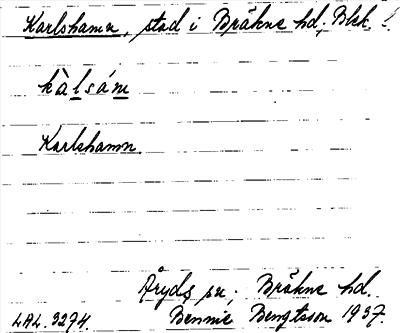 Karlshamn, stad i Bräkne hd, Blek. l.
kàlsám
Karlshamn.
Åryds sn, Bräkne hd.
LAL. 3274. Bennie Bengtsson 1937.